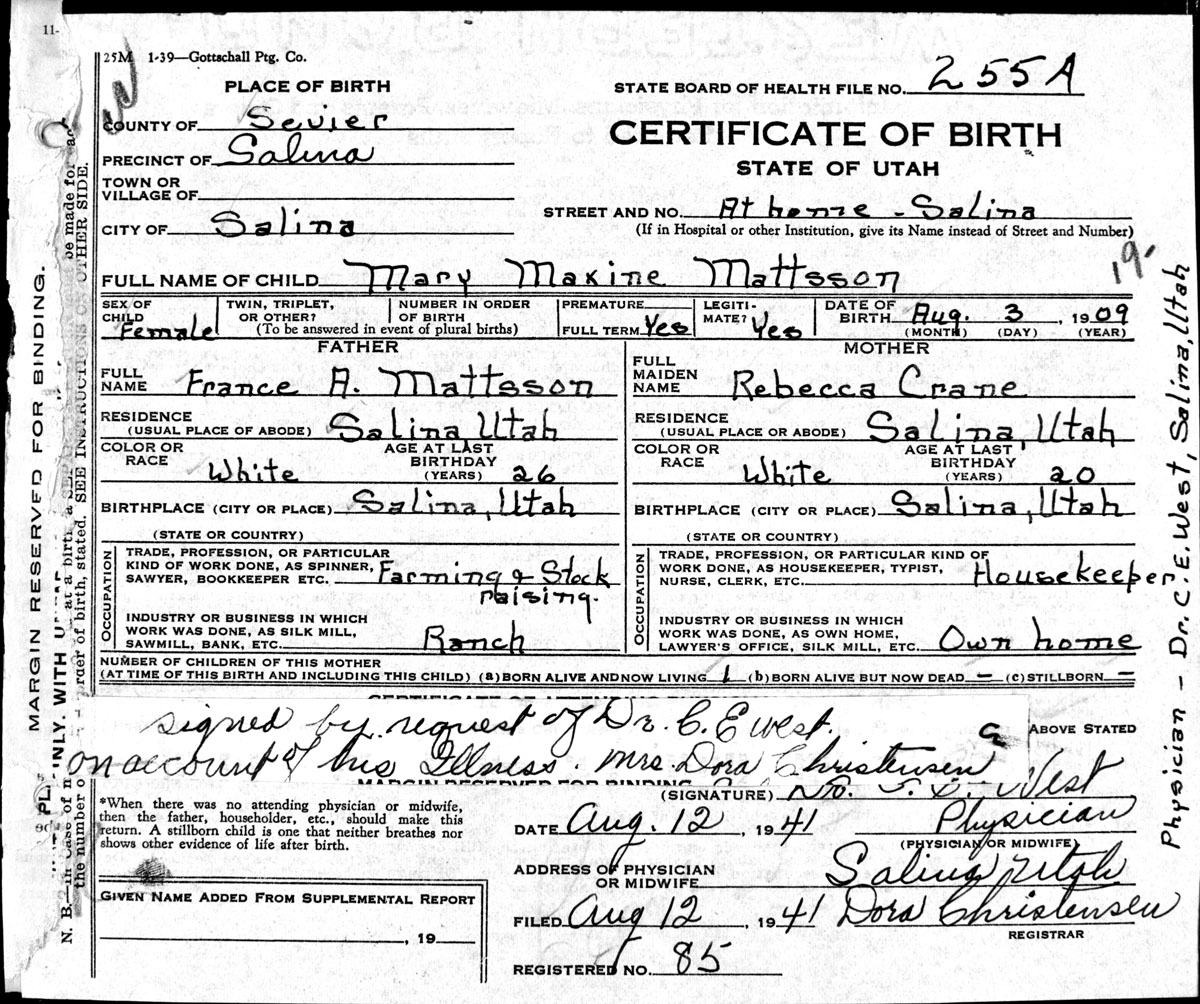 11-
25M 1-39—Gottschall Ptg. Co.
PLACE OF BIRTH
STATE BOARD OF HEALTH FILE NO. 255A
COUNTY OF Sevier
CERTIFICATE OF BIRTH
PRECINCT OF Salina
STATE OF UTAH
TOWN OR
VILLAGE OF
STREET AND NO. At home - Salina
CITY OF Salina
(If in Hospital or other Institution, give its Name instead of Street and Number)
19-
FULL NAME OF CHILD Mary Maxine Mattsson
SEX OF CHILD Female
TWIN, TRIPLET, OR OTHER?
NUMBER IN ORDER OF BIRTH
(To be answered in event of plural births)
PREMATURE
FULL TERM Yes
LEGITIMATE? Yes
DATE OF BIRTH Aug. 3, 1909
(MONTH) (DAY) (YEAR)
FATHER
FULL NAME France A. Mattsson
RESIDENCE
(USUAL PLACE OF ABODE) Salina Utah
COLOR OR RACE White
AGE AT LAST BIRTHDAY (YEARS) 26
BIRTHPLACE (CITY OR PLACE) Salina, Utah
(STATE OR COUNTRY)
OCCUPATION
TRADE, PROFESSION, OR PARTICULAR
KIND OF WORK DONE, AS SPINNER,
SAWYER, BOOKKEEPER ETC. Farming & Stock
raising.
INDUSTRY OR BUSINESS IN WHICH
WORK WAS DONE, AS SILK MILL,
SAWMILL, BANK, ETC. Ranch
MOTHER
FULL MAIDEN NAME Rebecca Crane
RESIDENCE
(USUAL PLACE OR ABODE) Salina, Utah
COLOR OR RACE White
AGE AT LAST BIRTHDAY (YEARS) 20
BIRTHPLACE (CITY OR PLACE) Salina, Utah
(STATE OR COUNTRY)
OCCUPATION
TRADE, PROFESSION, OR PARTICULAR KIND OF
WORK DONE, AS HOUSEKEEPER, TYPIST,
NURSE, CLERK, ETC. Housekeeper
INDUSTRY OR BUSINESS IN WHICH
WORK WAS DONE, AS OWN HOME,
LAWYER'S OFFICE, SILK MILL, ETC. Own home
NUMBER OF CHILDREN OF THIS MOTHER
(AT TIME OF THIS BIRTH AND INCLUDING THIS CHILD) (a) BORN ALIVE AND NOW LIVING 1 (b) BORN ALIVE BUT NOW DEAD - (c) STILLBORN -
signed by request of Dr. C. E West.
on account of his Illness. Mrs. Dora Christensen
ABOVE STATED
(SIGNATURE) West
*When there was no attending physician or midwife,
then the father, householder, etc., should make this
return. A stillborn child is one that neither breathes nor
shows other evidence of life after birth.
DATE Aug. 12, 1941 Physician
(PHYSICIAN OR MIDWIFE)
ADDRESS OF PHYSICIAN
OR MIDWIFE Salina Utah
GIVEN NAME ADDED FROM SUPPLEMENTAL REPORT
, 19
FILED Aug 12 1941 Dora Christensen
REGISTRAR
REGISTERED NO. 85
MARGIN RESERVED FOR BINDING.
order of birth, stated. SEE INSTRUCTIONS ON OTHER SIDE.
Physician - Dr. C. E. West, Salina, Utah